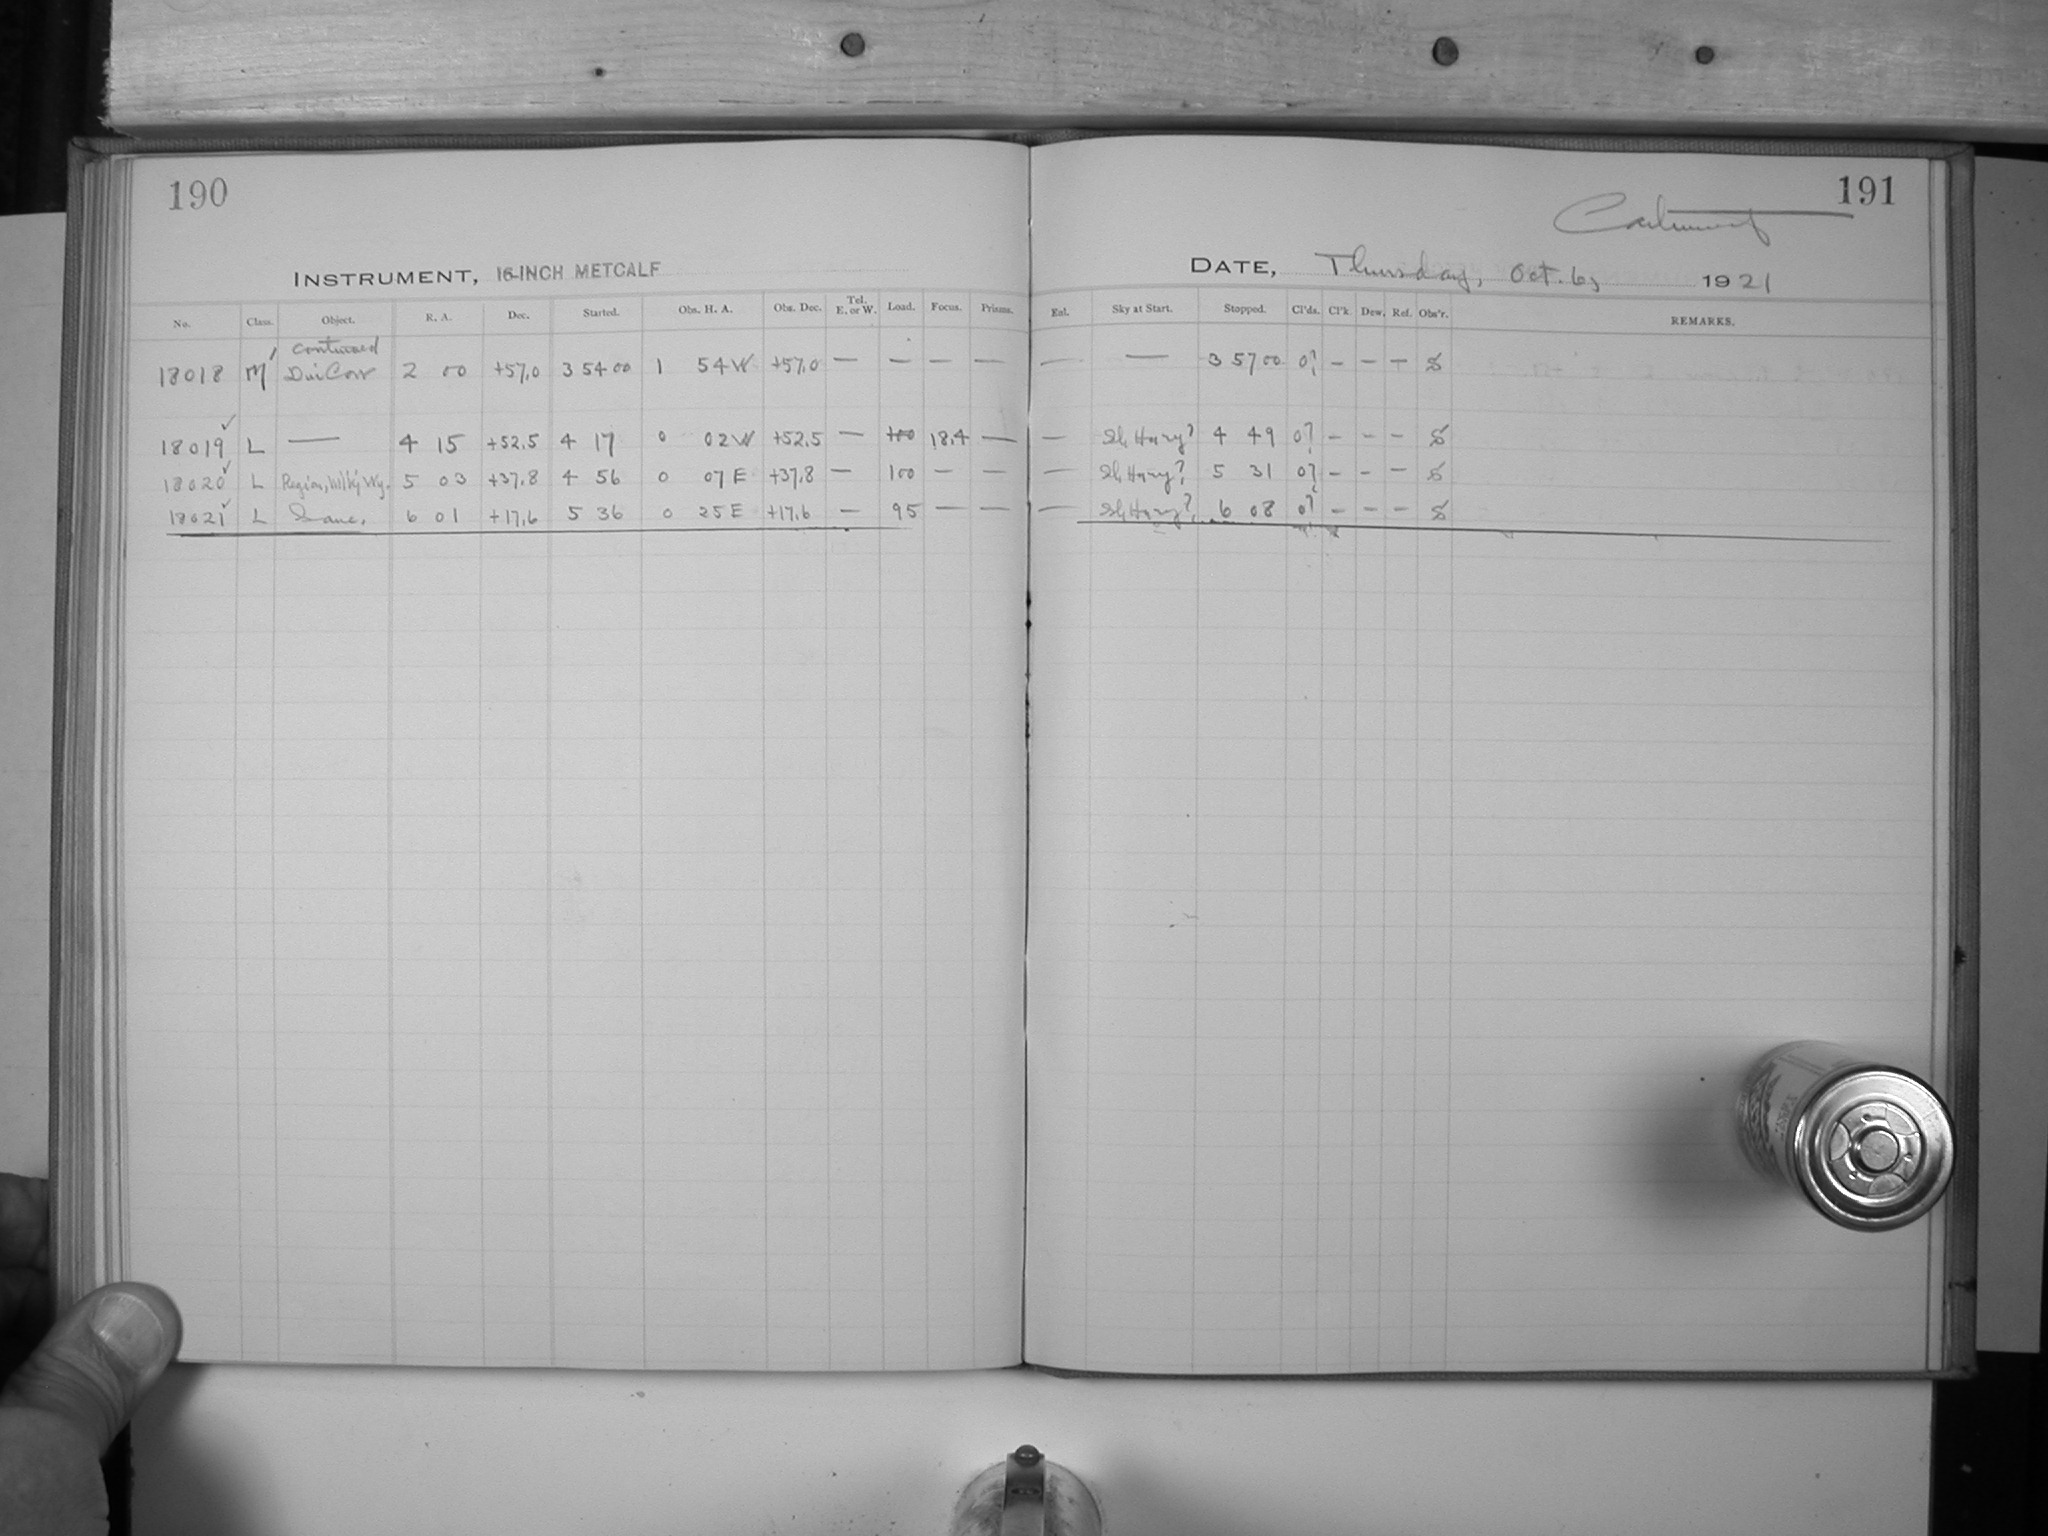 190
191
Continued
INSTRUMENT, 16-INCH METCALF
DATE, Thursday, Oct. 6, 1921
No. Class. Object. R. A. Dec. Started. Obs. H. A. Obs. Dec. Tel. E. or W. Load. Focus. Prisms. Enl. Sky at Start. Stopped. Cl'ds. Cl'k. Dew. Ref. Obs'r. REMARKS.
continued
18018 M' 2 00 +57.0 3 54 00 1 54 W +57.0 — — — — — — 3 57 00 0? — — — S
18019 L — 4 15 +52.5 4 17 0 02 W +52.5 — 100 18.4 — — Sl. Hazy? 4 49 0? — — — S
18020 L Region, Milky Wy. 5 03 +37.8 4 56 0 07 E +37.8 — 100 — — — Sl. Hazy? 5 31 0? — — — S
18021 L Same. 6 01 +17.6 5 36 0 25 E +17.6 — 95 — — — Sl. Hazy? 6 08 0? — — — S